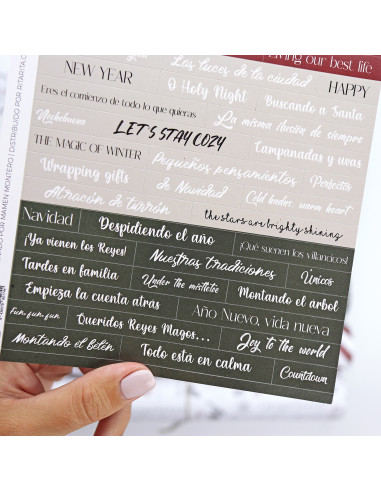 Living our best life
Las luces de la ciudad
NEW YEAR
HAPPY
O Holy Night
Buscando a Santa
Eres el comienzo de todo lo que quieras
Nickelness
La misma ilusión de siempre
LET'S STAY COZY
Campanadas y uvas
THE MAGIC OF WINTER
Pequeños pensamientos
de Navidad
Perfectos
Wrapping gifts
Cold hands, warm heart
Atracón de turrón
the stars are brighty shining
Navidad
Despidiendo el año
¡Qué suenen los villancicos!
¡Ya vienen los Reyes!
Nuestras tradiciones
Únicos
Tardes en familia
Under the mistletoe
Montando el arbol
Empieza la cuenta atrás
Año Nuevo, vida nueva
Fun, fun, fun
Queridos Reyes Magos...
Joy to the world
Montando el Belén
Todo está en calma
Countdown
POR MAMEN MONTERO | DISTRIBUIDO POR RITARITA